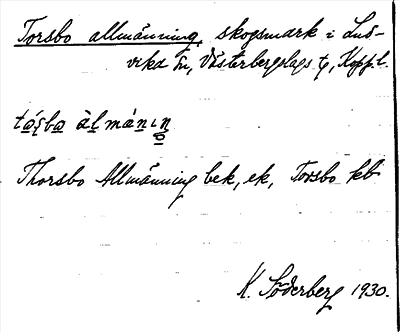 Torsbo allmänning, skogsmark i Lud-
vika sn, Västerbergslags tg, Kopp.l.
Thorsbo Allmänning bek, ek, Torsbo kb
K. Söderberg 1930.